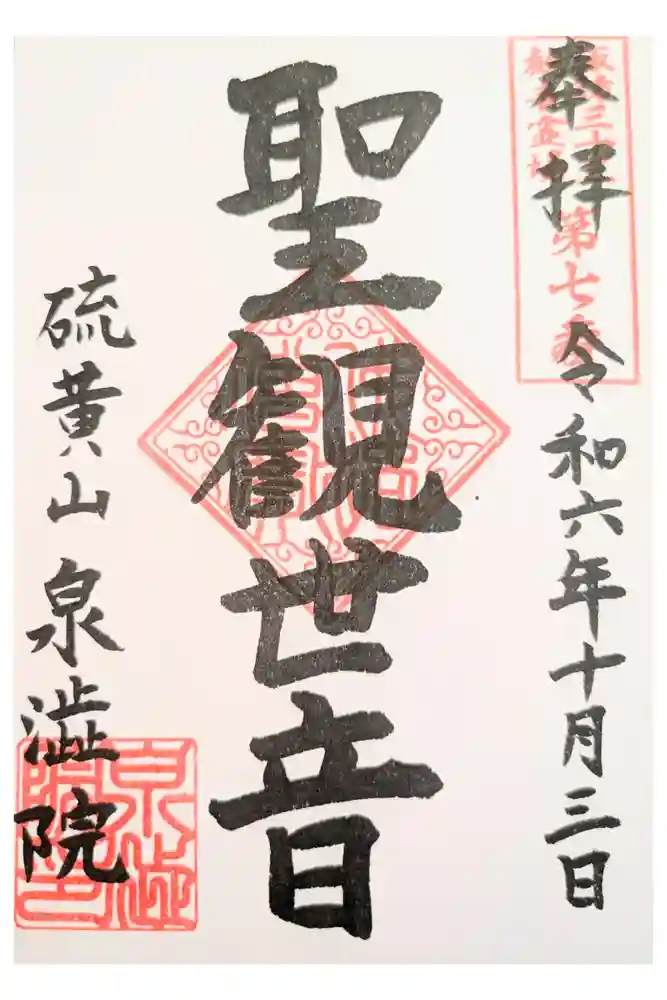 奉拝
第七番
令和六年十月三日
聖観世音
硫黄山 泉澁院